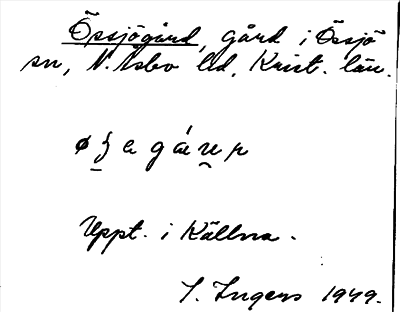 Össjögård, gård i Össjö
sn, N. Åsbo hd, Krist. län.
Uppt. i Källna.
J. Ingers 1949.